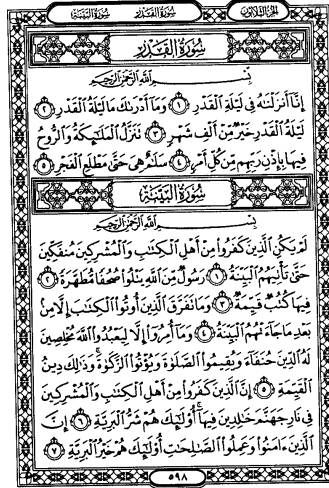 الجزء الثلاثون سورة القدر سورة البينة
سورة القدر
بسم الله الرحمن الرحيم
إِنَّا أَنزَلْنَٰهُ فِي لَيْلَةِ الْقَدْرِ ١ وَمَا أَدْرَىٰكَ مَا لَيْلَةُ الْقَدْرِ ٢
لَيْلَةُ الْقَدْرِ خَيْرٌ مِّنْ أَلْفِ شَهْرٍ ٣ تَنَزَّلُ الْمَلَٰٓئِكَةُ وَالرُّوحُ
فِيهَا بِإِذْنِ رَبِّهِم مِّن كُلِّ أَمْرٍ ٤ سَلَٰمٌ هِيَ حَتَّىٰ مَطْلَعِ الْفَجْرِ ٥
سورة البينة
بسم الله الرحمن الرحيم
لَمْ يَكُنِ الَّذِينَ كَفَرُوا مِنْ أَهْلِ الْكِتَٰبِ وَالْمُشْرِكِينَ مُنفَكِّينَ
حَتَّىٰ تَأْتِيَهُمُ الْبَيِّنَةُ ١ رَسُولٌ مِّنَ اللَّهِ يَتْلُوا صُحُفًا مُّطَهَّرَةً ٢
فِيهَا كُتُبٌ قَيِّمَةٌ ٣ وَمَا تَفَرَّقَ الَّذِينَ أُوتُوا الْكِتَٰبَ إِلَّا مِنۢ
بَعْدِ مَا جَاءَتْهُمُ الْبَيِّنَةُ ٤ وَمَا أُمِرُوا إِلَّا لِيَعْبُدُوا اللَّهَ مُخْلِصِينَ
لَهُ الدِّينَ حُنَفَاءَ وَيُقِيمُوا الصَّلَوٰةَ وَيُؤْتُوا الزَّكَوٰةَ وَذَٰلِكَ دِينُ
الْقَيِّمَةِ ٥ إِنَّ الَّذِينَ كَفَرُوا مِنْ أَهْلِ الْكِتَٰبِ وَالْمُشْرِكِينَ
فِي نَارِ جَهَنَّمَ خَٰلِدِينَ فِيهَا أُولَٰئِكَ هُمْ شَرُّ الْبَرِيَّةِ ٦ إِنَّ
الَّذِينَ ءَامَنُوا وَعَمِلُوا الصَّٰلِحَٰتِ أُولَٰئِكَ هُمْ خَيْرُ الْبَرِيَّةِ ٧
٥٩٨